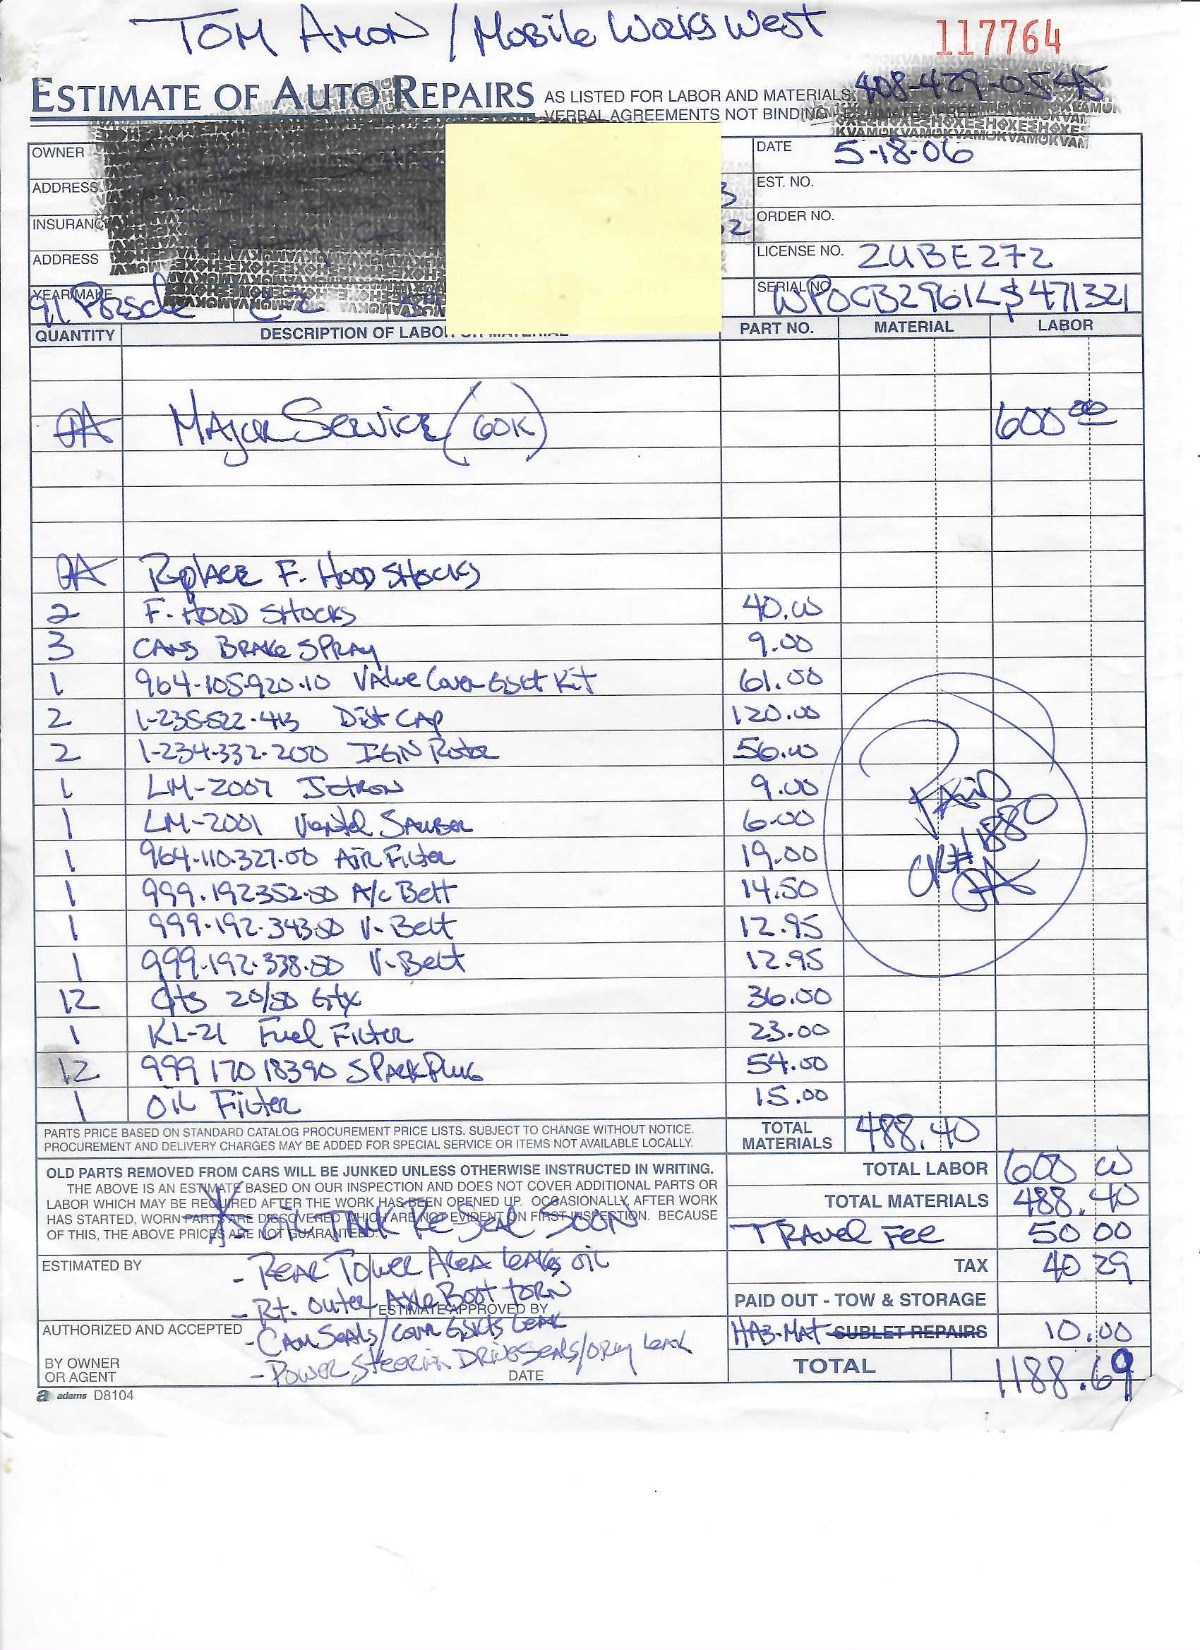 TOM AMON / Mobile Works West
117764
ESTIMATE OF AUTO REPAIRS AS LISTED FOR LABOR AND MATERIALS.
408-429-0545
VERBAL AGREEMENTS NOT BINDING
OWNER
DATE 5-18-06
ADDRESS
EST. NO.
INSURANC
ORDER NO.
ADDRESS
LICENSE NO. 2UBE272
YEAR/MAKE 91 Porsche C-2
SERIAL NO. WPOCB2961L$471321
QUANTITY DESCRIPTION OF LABOR OR MATERIAL PART NO. MATERIAL LABOR
Major Service (60K) 600.00
Replace F. Hood Shocks
2 F. Hood Shocks 40.00
3 CANS BRAKE SPRAY 9.00
1 964-105-920-10 Valve Cover Gsket Kit 61.00
2 1-235-522-413 Dist CAP 120.00
2 1-234-332-200 IGN Rotor 56.00
1 LM-2007 Jetron 9.00
1 LM-2001 Ventil Sauber 6.00
1 964-110-327-00 AIR Filter 19.00
1 999-192352-50 A/c Belt 14.50
1 999-192-343-50 V-Belt 12.95
1 999-192-338-50 V-Belt 12.95
12 Qts 20/50 Gtx 36.00
1 KL-21 Fuel Filter 23.00
12 999 170 18390 Spark Plug 54.00
1 OIL Filter 15.00
PAID
CK# 1880
PARTS PRICE BASED ON STANDARD CATALOG PROCUREMENT PRICE LISTS. SUBJECT TO CHANGE WITHOUT NOTICE.
PROCUREMENT AND DELIVERY CHARGES MAY BE ADDED FOR SPECIAL SERVICE OR ITEMS NOT AVAILABLE LOCALLY.
TOTAL MATERIALS 488.40
OLD PARTS REMOVED FROM CARS WILL BE JUNKED UNLESS OTHERWISE INSTRUCTED IN WRITING.
THE ABOVE IS AN ESTIMATE BASED ON OUR INSPECTION AND DOES NOT COVER ADDITIONAL PARTS OR
LABOR WHICH MAY BE REQUIRED AFTER THE WORK HAS BEEN OPENED UP. OCCASIONALLY, AFTER WORK
HAS STARTED, WORN PARTS ARE DISCOVERED WHICH ARE NOT EVIDENT ON FIRST INSPECTION. BECAUSE
OF THIS, THE ABOVE PRICES ARE NOT GUARANTEED.
TOTAL LABOR 600 00
TOTAL MATERIALS 488.40
TRAVEL FEE 50 00
TAX 40 29
PAID OUT - TOW & STORAGE
HAZ-MAT SUBLET REPAIRS 10.00
TOTAL 1188.69
* Oil TANK Reseal SOON
ESTIMATED BY
- Rear Tower Area leaks oil
- Rt. outer Axle Boot torn
ESTIMATE APPROVED BY
AUTHORIZED AND ACCEPTED
- Cam Seals/Cover Gskts Leak
- Power Steerin Drive Seals/oring leak
BY OWNER
OR AGENT
DATE
adams D8104